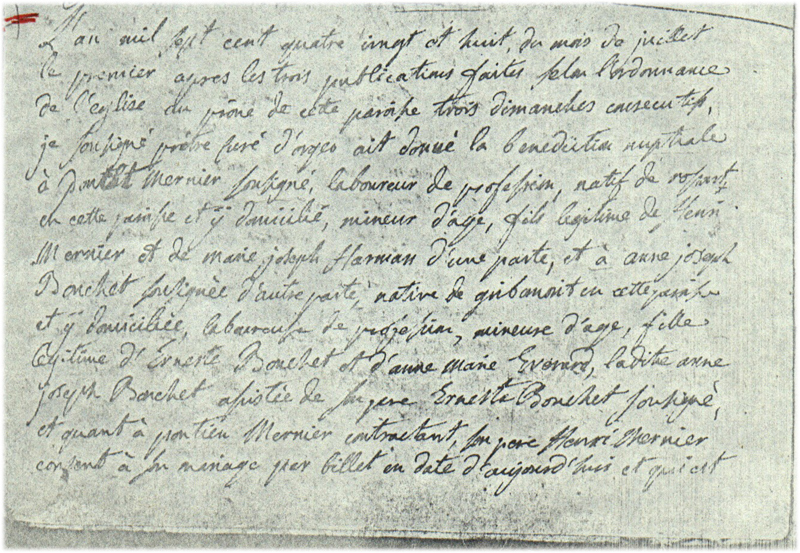 L'an mil sept cent quatre vingt et huit, du mois de juillet
le premier apres les trois publications faites selon l'ordonnance
de l'eglise au prône de cette paroisse trois dimanches consecutifs,
je soussigné prêtre curé d'orgeo ait donné la benediction nuptiale
à Mernier soussigné, laboureur de profession, natif de rossart
en cette paroisse et ÿ domicilié, mineur d'age, fils legitime de Henri
Mernier et de marie joseph Harman d'une parte, et à anne joseph
Bouchet soussignée d'autre parte, native de gribomont en cette paroisse
et ÿ domiciliée, laboureuse de profession, mineure d'age, fille
legitime d'Erneste Bouchet et d'anne marie Everard, ladite anne
joseph Bouchet assistée de son pere Erneste Bouchet soussigné,
et quant à pontien Mernier contractant, son pere Henri Mernier
consent à son mariage par billet en date d'aujourd'huis et qui est